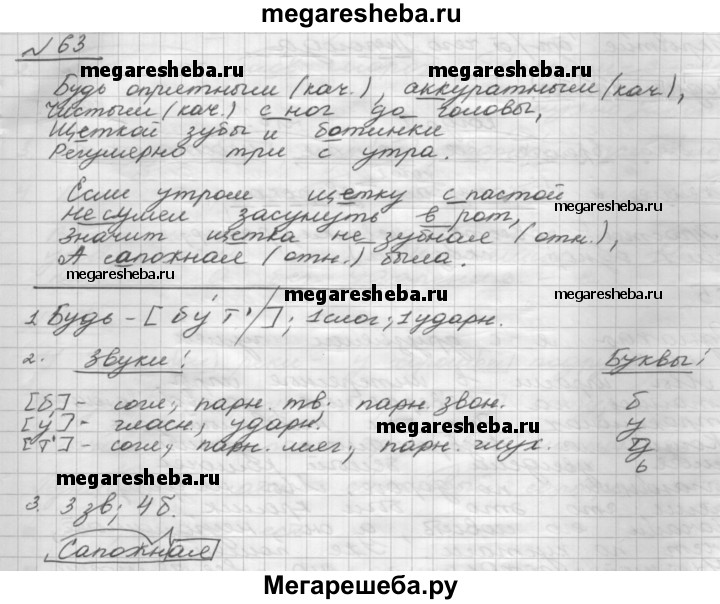 megaresheba.ru
№ 63
megaresheba.ru megaresheba.ru
Будь опрятным (кач.), аккуратным (кач.),
Чистым (кач.) с ног до головы,
Щеткой зубы и ботинки
Регулярно три с утра.
Если утром щетку с пастой
megaresheba.ru
Не сумел засунуть в рот,
Значит щетка не зубная (отн.),
А сапожная (отн.) была.
megaresheba.ru
megaresheba.ru
1. Будь - [бу́т']; 1 слог; 1 ударн.
2. Звуки: Буквы:
[б] - согл., парн. тв. парн. звон. б
[у́] - гласн., ударн. у
megaresheba.ru
[т'] - согл., парн. мяг., парн. глух. д
ь
megaresheba.ru
3. 3 зв; 4 б.
Сапожная
megaresheba.ru
Мегарешеба.ру